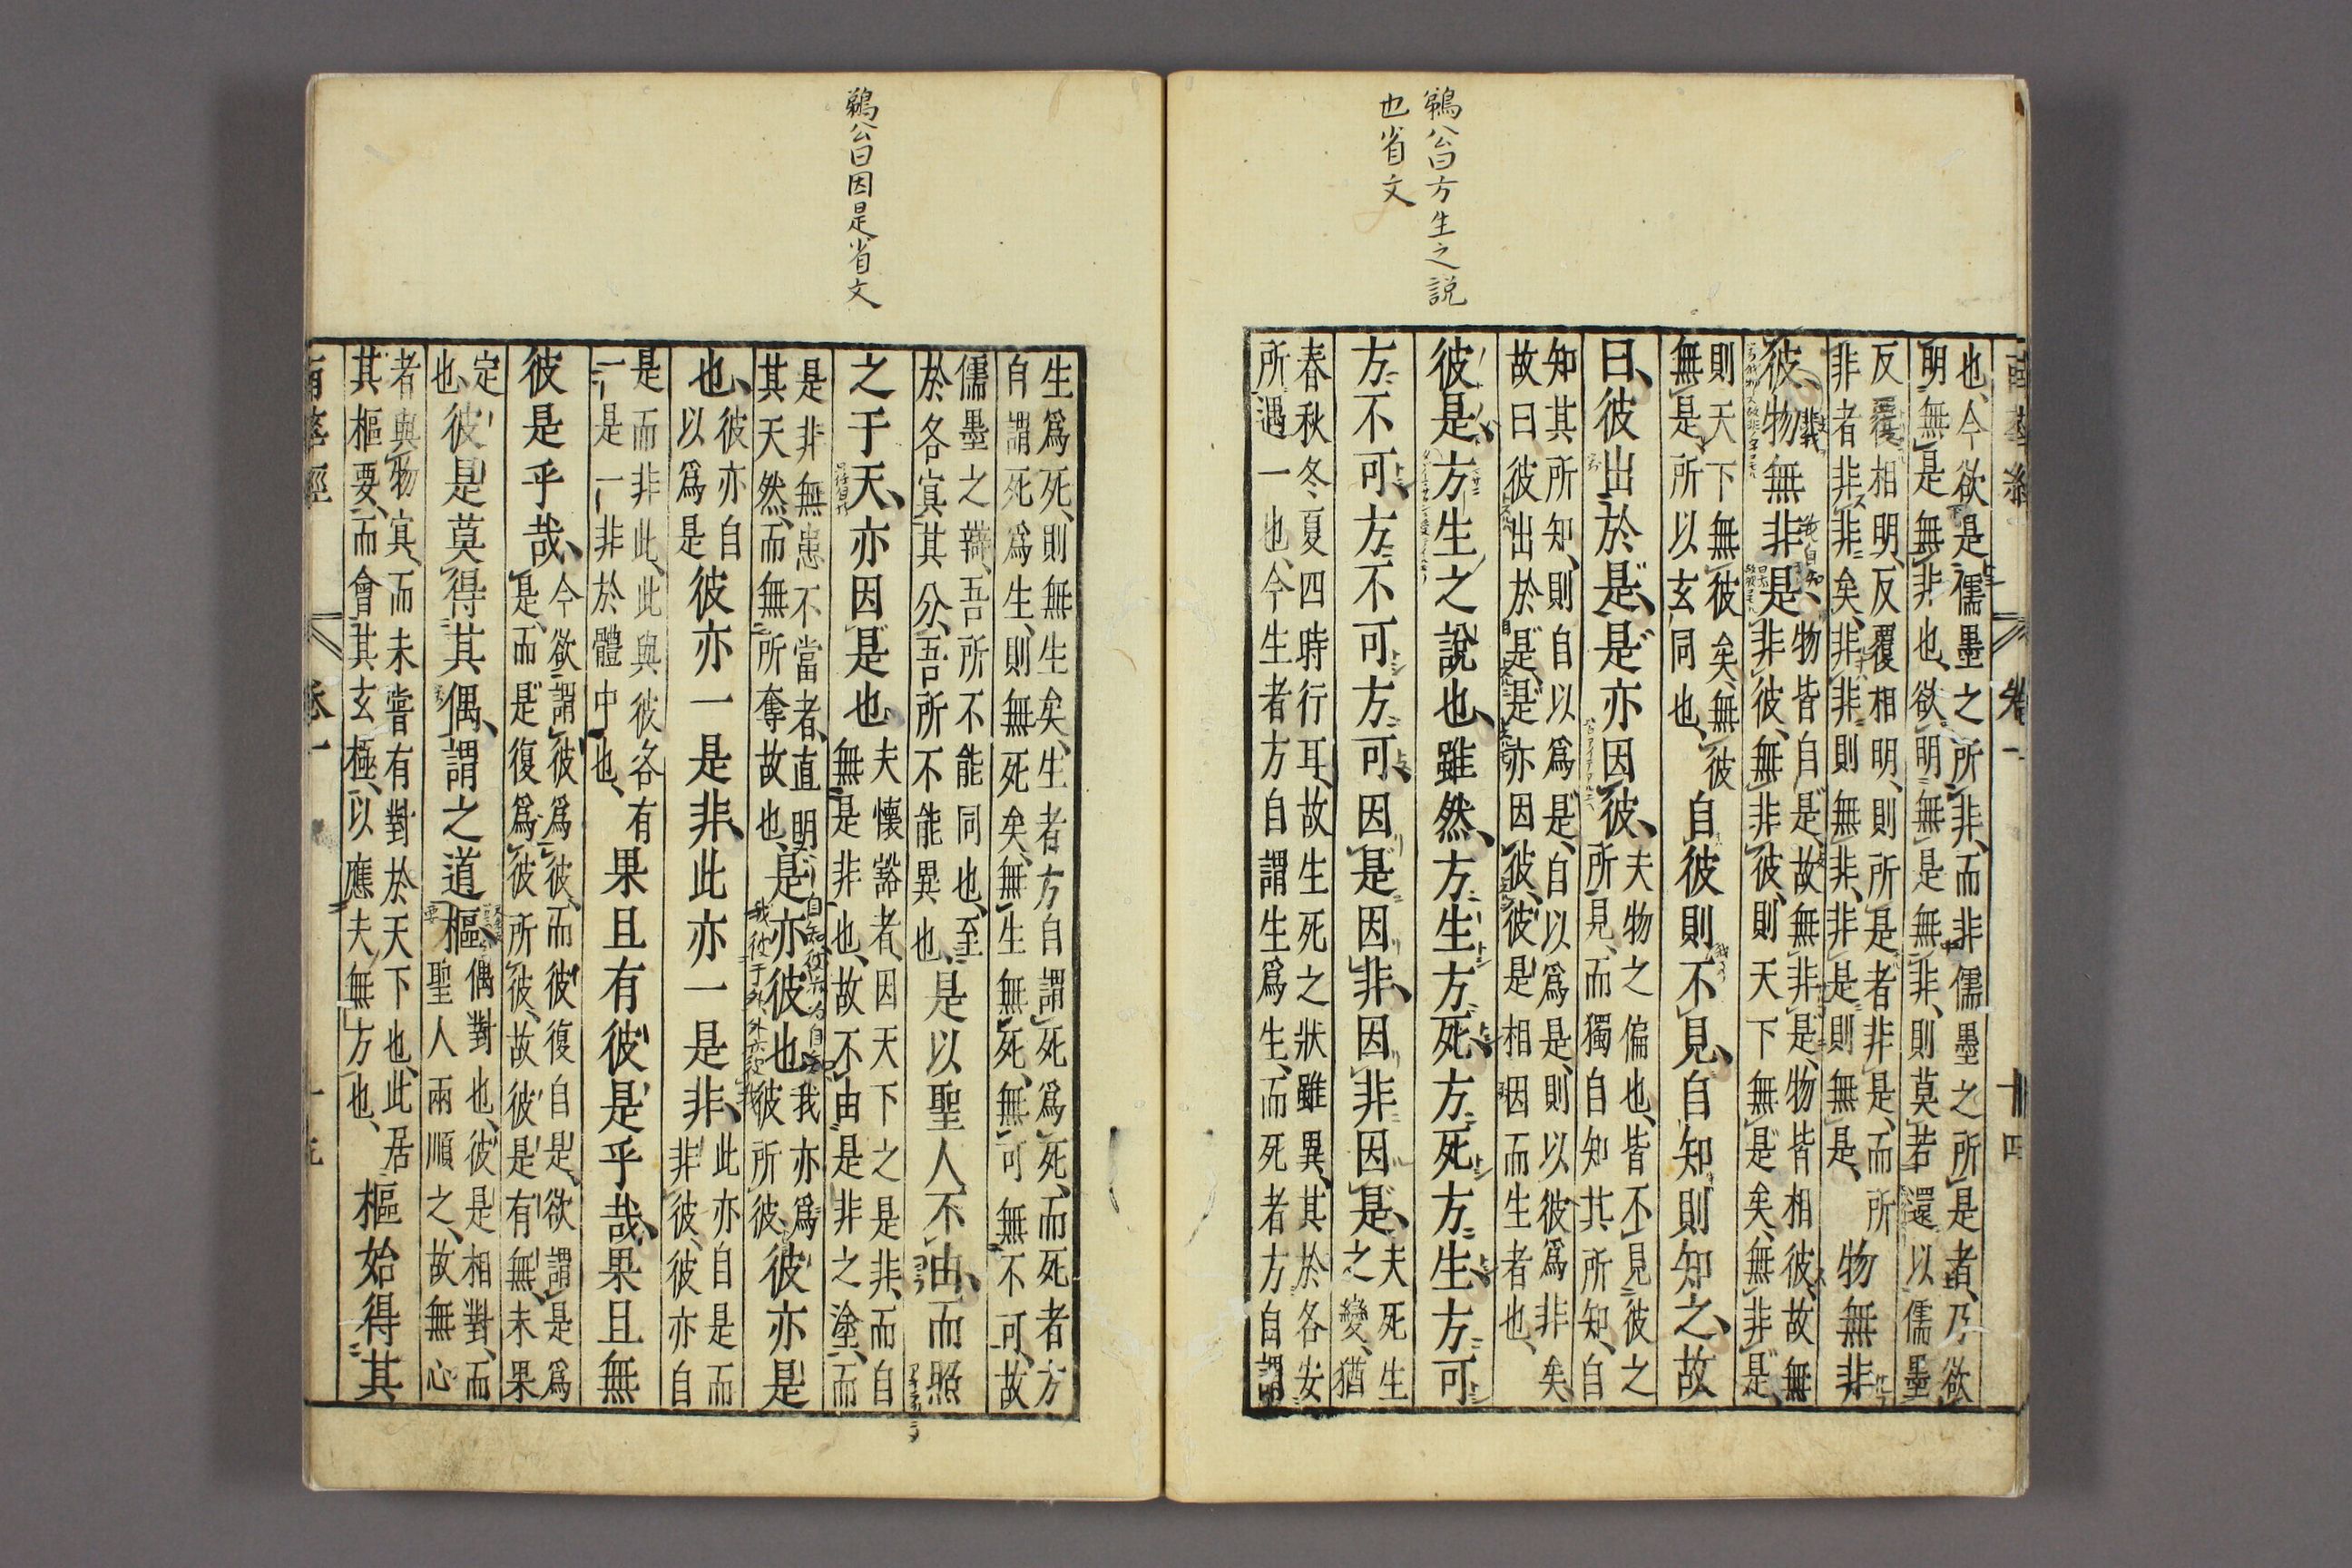 鵜公曰方生之説
也省文
南華經 卷一 十四
也、今欲是儒墨之所非、而非儒墨之所是者、乃欲
明無是無非也、欲明無是無非、則莫若還以儒墨
反覆相明、反覆相明、則所是者非是、而所
非者非非矣、非非則無非、非是則無是、
物無非
彼、物無非是、
物皆自是、故無非是、物皆相彼、故無
非彼、無非彼、則天下無是矣、無非是、
則天下無彼矣、無彼
無是、所以玄同也、
自彼則不見、自知則知之、故
曰、彼出於是、是亦因彼、
夫物之偏也、皆不見彼之
所見、而獨自知其所知、自
知其所知、則自以爲是、自以爲是、則以彼爲非矣
故曰彼出於是、是亦因彼、彼是相因而生者也、
彼是方生之說也、雖然、方生方死、方死方生、方可
方不可、方不可方可、因是因非、因非因是、
夫死生
之變、猶
春秋冬夏四時行耳、故生死之狀雖異、其於各安
所遇一也、今生者方自謂生爲生、而死者方自謂
鵜公曰因是省文
生爲死、則無生矣、生者方自謂死爲死、而死者方
自謂死爲生、則無死矣、無生無死、無可無不可、故
儒墨之辯、吾所不能同也、至
於各㝠其分、吾所不能異也、
是以聖人不由、而照
之于天、亦因是也、
夫懷豁者、因天下之是非、而自
無是非也、故不由是非之塗、而
是非無患不當者、直明
其天然、而無所奪故也、
是亦彼也、
我亦爲
彼所彼、
彼亦是
也、
彼亦自
以爲是
彼亦一是非、此亦一是非、
此亦自是而
非彼、彼亦自
是而非此、此與彼各有
一是一非於體中也、
果且有彼是乎哉、果且無
彼是乎哉、
今欲謂彼爲彼、而彼復自是、欲謂是爲
是、而是復爲彼所彼、故彼是有無、未果
定
也、
彼是莫得其偶、謂之道樞、
偶對也、彼是相對、而
聖人兩順之、故無心
者與物㝠、而未嘗有對於天下也、此居
其樞要、而會其玄極、以應夫無方也、
樞始得其
南華經 卷一